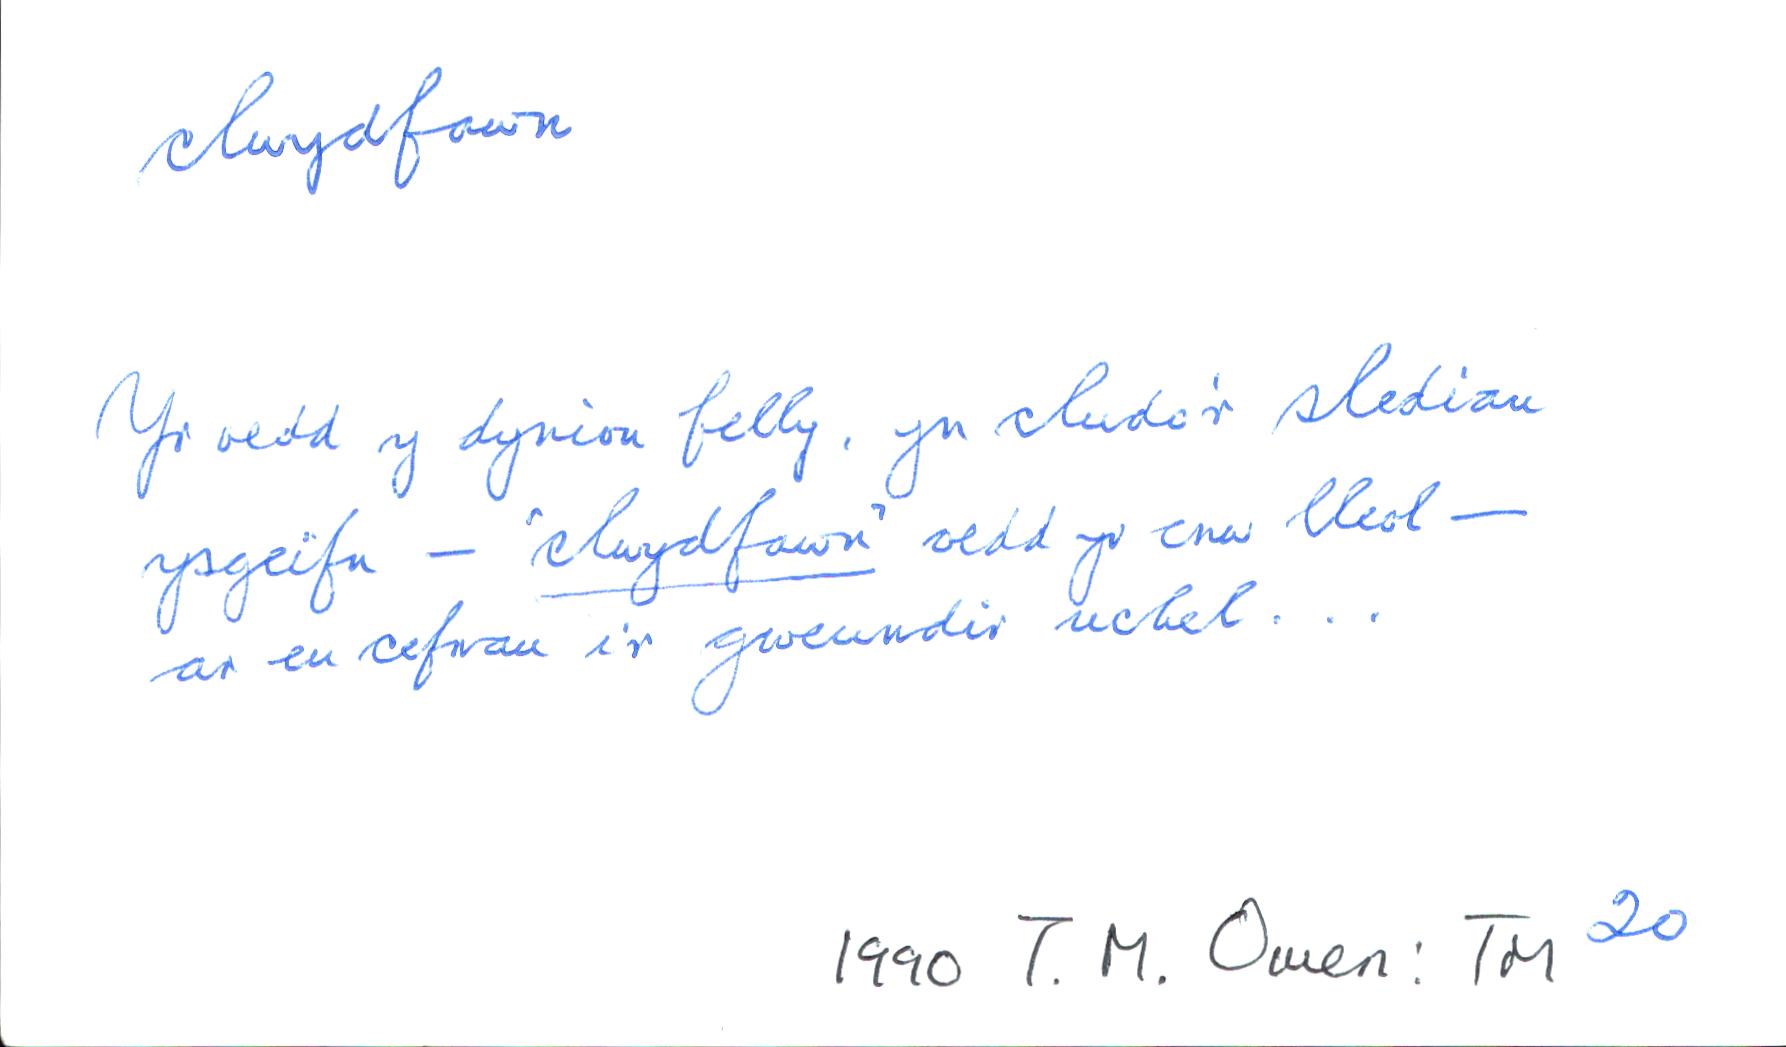 clwydfawn
Yr oedd y dynion felly, yn cludo'r slediau
ysgeifn — 'clwydfawn' oedd yr enw lleol —
ar eu cefnau i'r gweundir uchel...
1990 T. M. Owen: TM 20